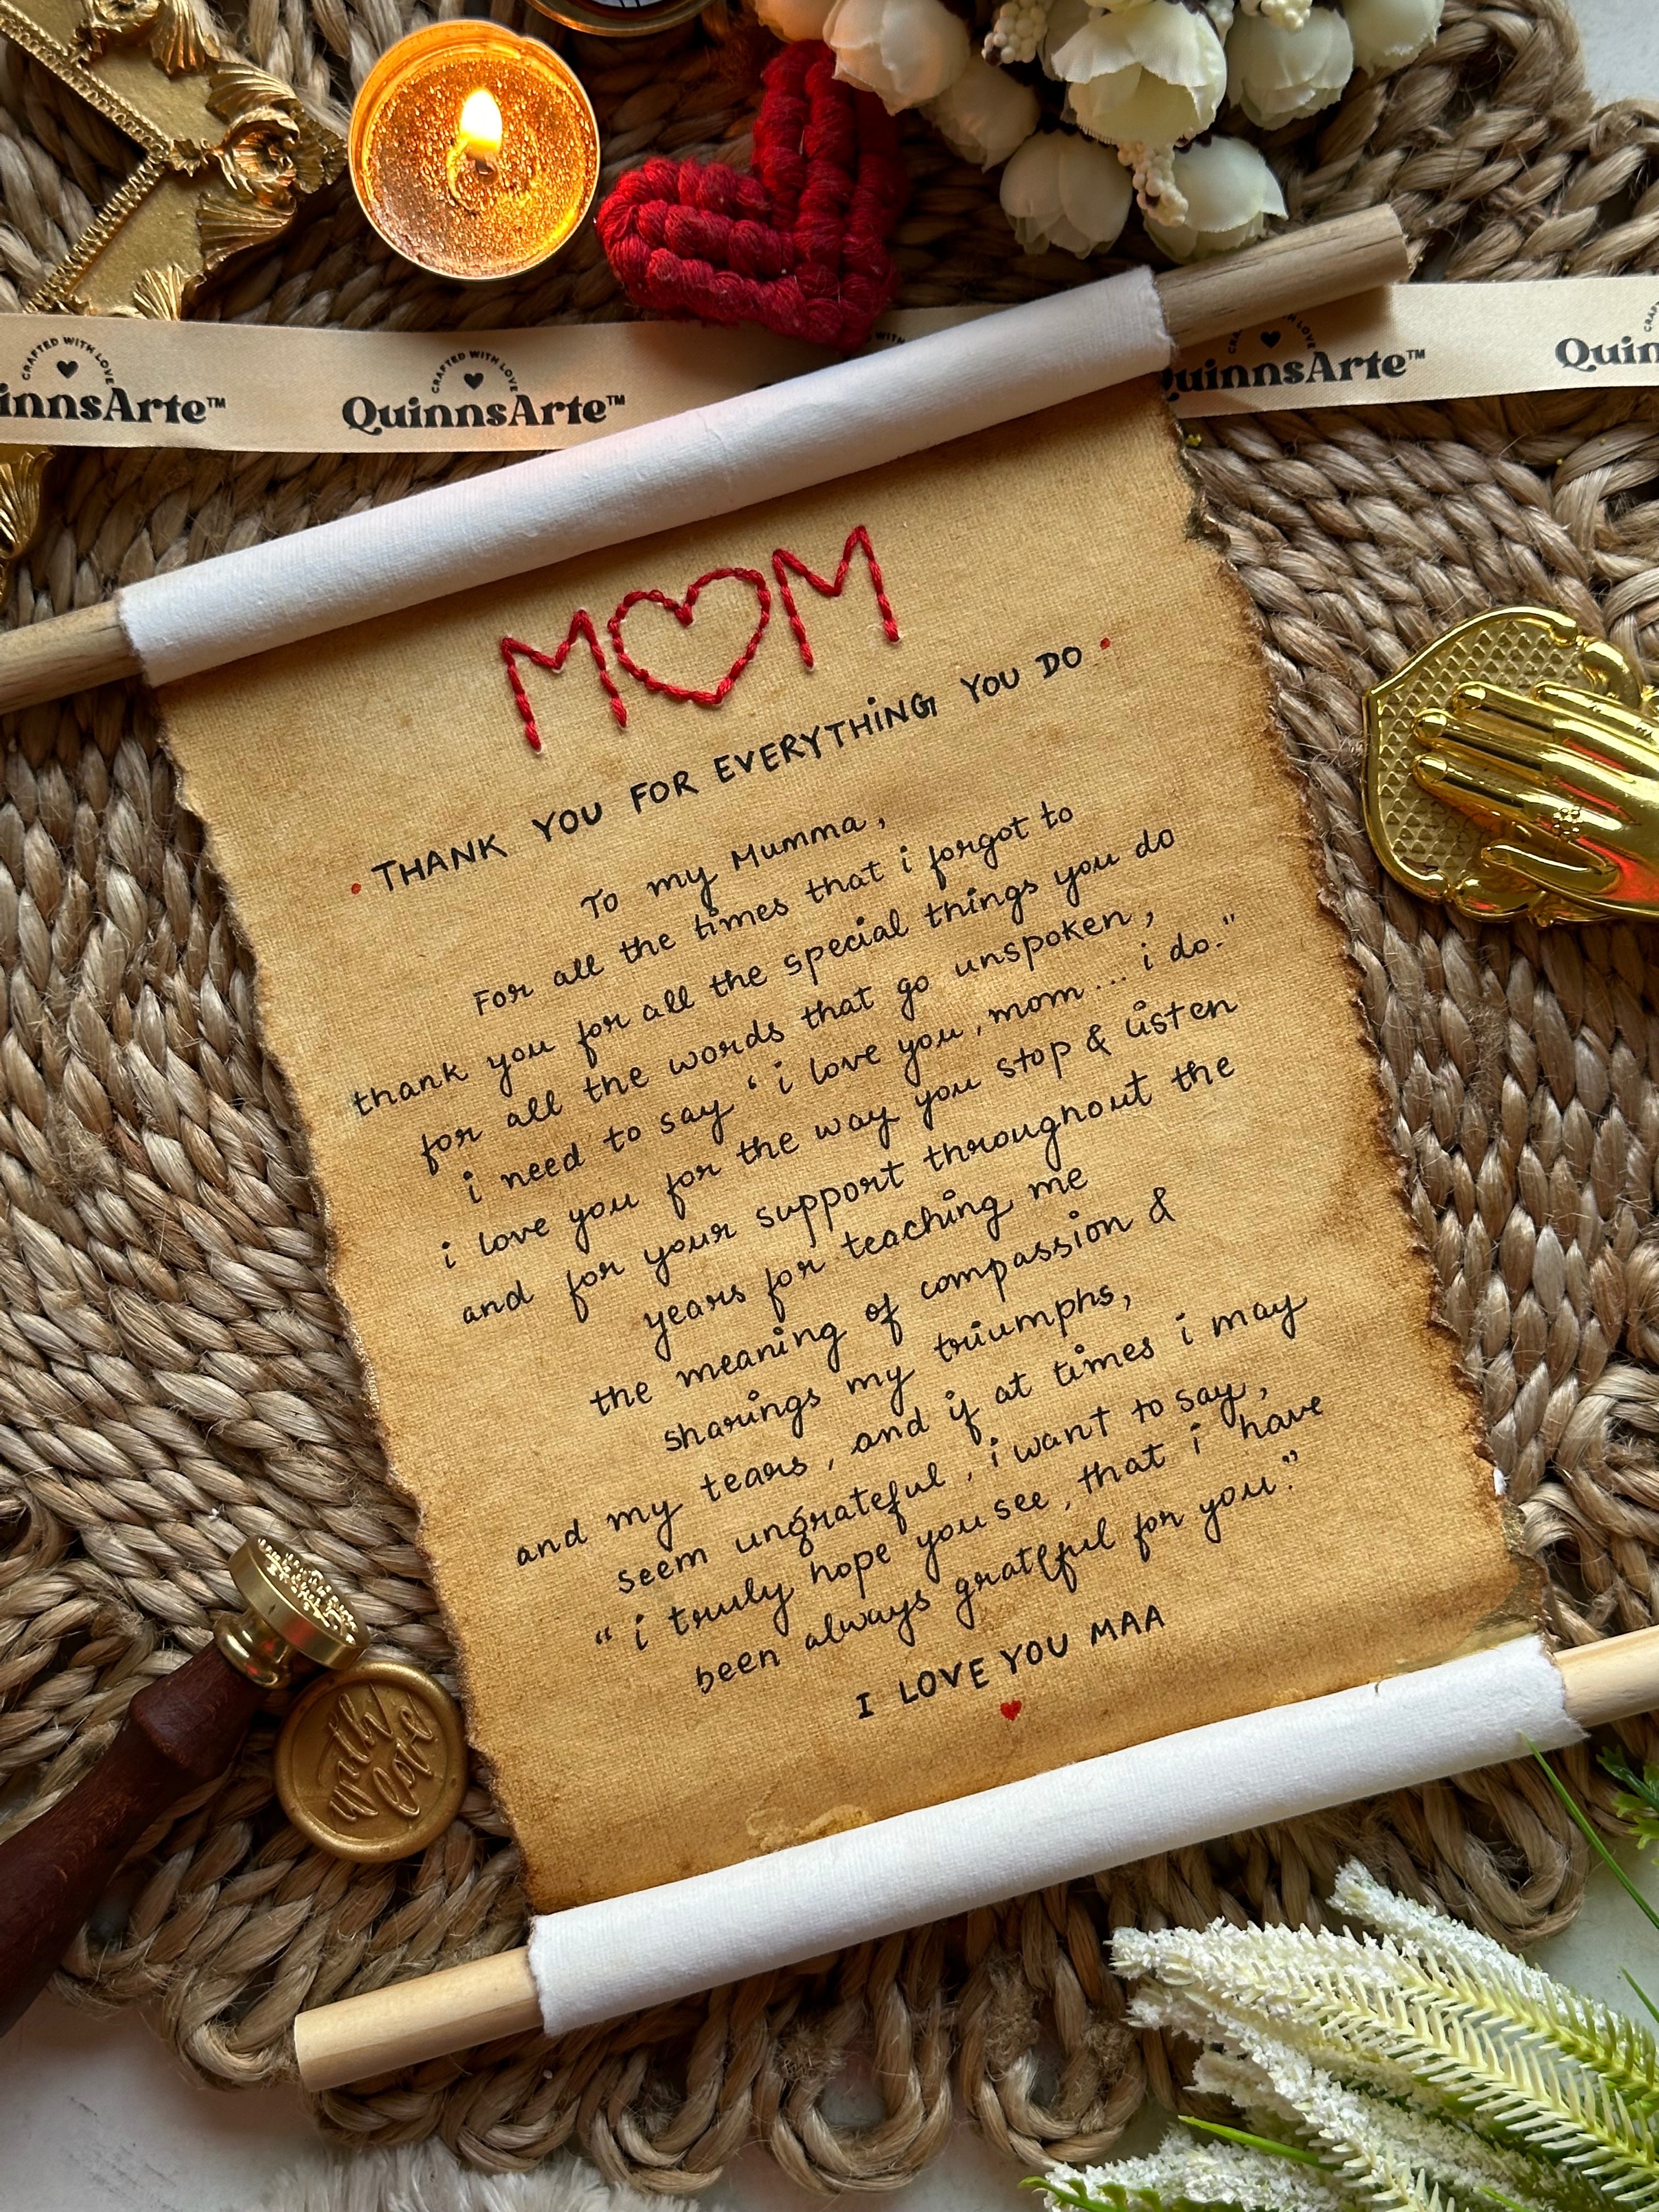 CRAFTED WITH LOVE
innsArte™
CRAFTED WITH LOVE
QuinnsArte™
uinnsArte™
Quin
M♡M
• THANK YOU FOR EVERYTHING YOU DO •
To my Mumma,
For all the times that i forgot to
thank you for all the special things you do
for all the words that go unspoken,
i need to say ‘ i love you, mom... i do."
i love you for the way you stop & listen
and for your support throughout the
years for teaching me
the meaning of compassion &
sharings my triumphs,
and my tears, and if at times i may
seem ungrateful, i want to say,
“ i truly hope you see, that i have
been always grateful for you."
I LOVE YOU MAA
♥
with
love